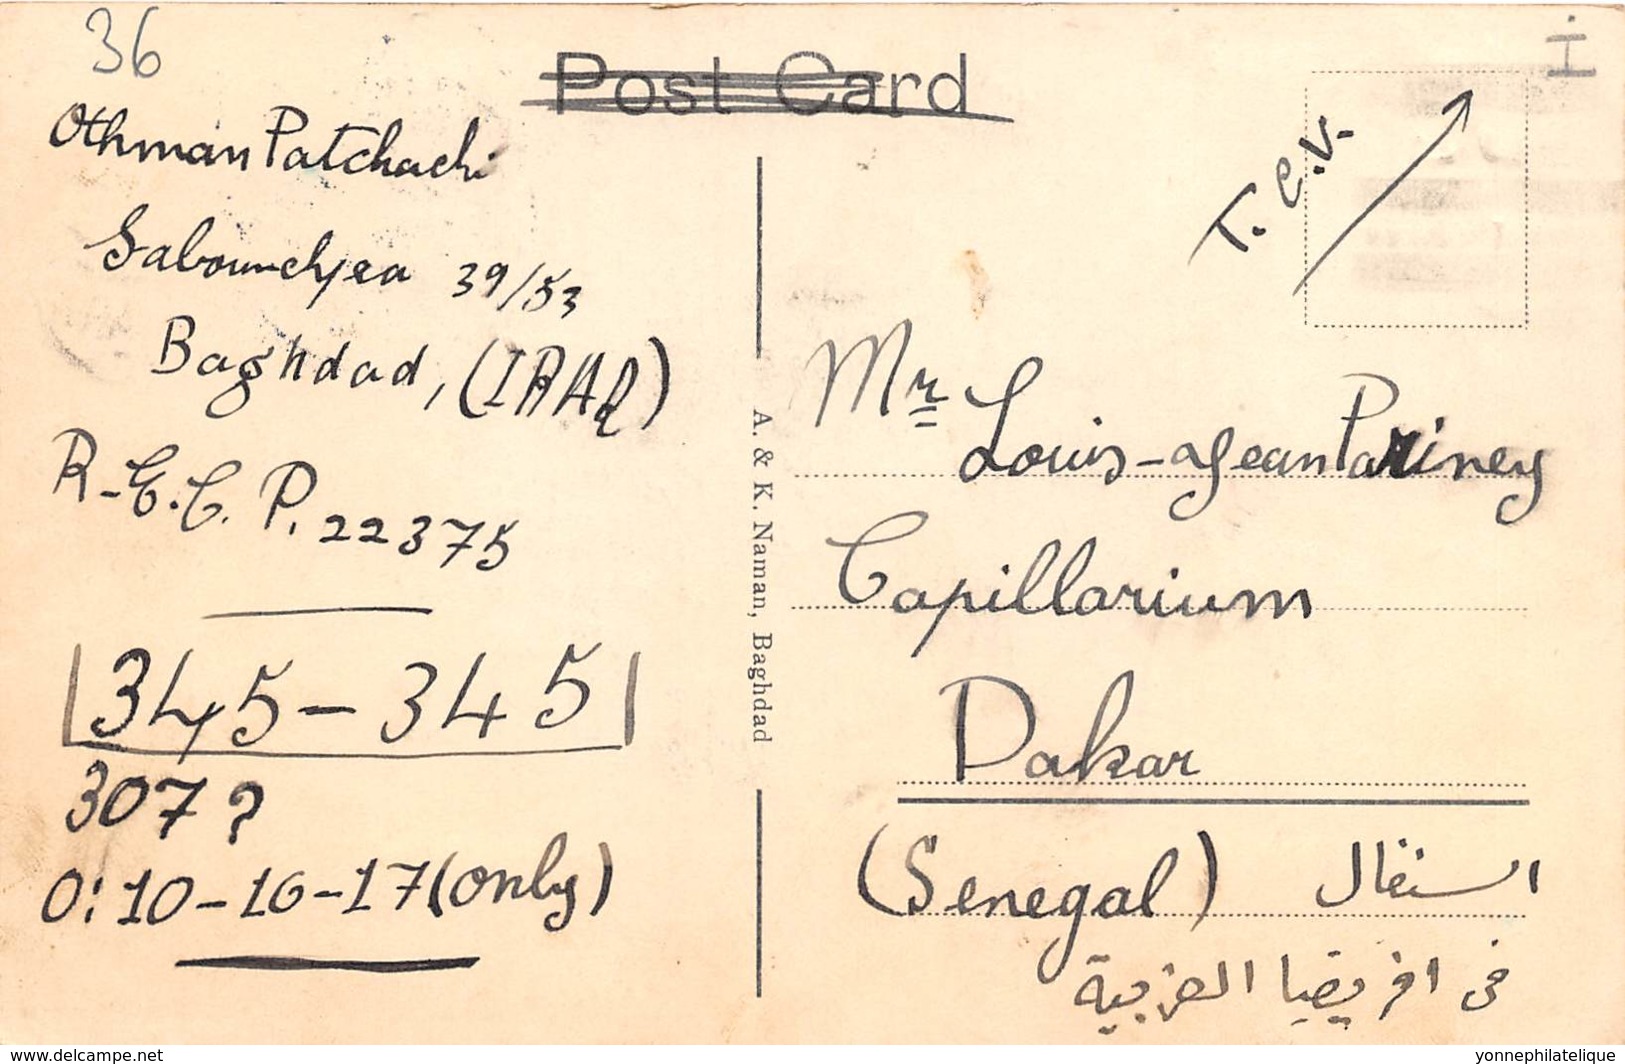 36
Post Card
I
T.C.V.
Othman Patchachi
Sabounchyea 39/53
Baghdad, (IRAQ)
R-E.C. P. 22375
345-345
307?
O: 10-16-17 (only)
A. & K. Naman, Baghdad
Mr Louis-Jean Pariney
Capillarium
Dakar
(Senegal) السنغال
في افريقيا الغربية
www.delcampe.net
yonnephilatelique